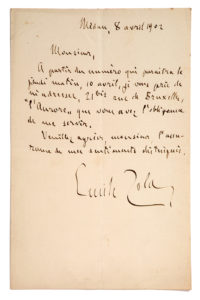 Médan, 8 avril 1902
Monsieur,
A partir du numéro qui paraîtra le
jeudi matin, 10 avril, je vous prie de
m'adresser, 21 bis, rue de Bruxelles,
"l'Aurore", que vous avez l'obligeance
de me servir.
Veuillez agréer, monsieur, l'assu-
rance de mes sentiments distingués.
Emile Zola